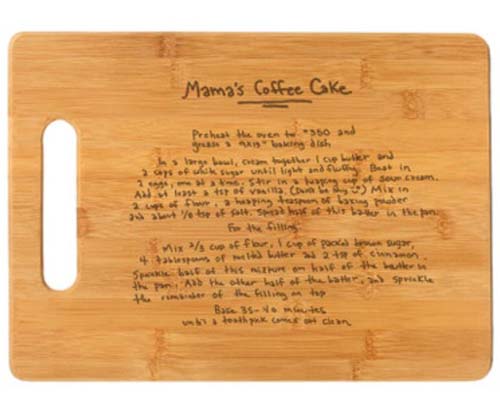 Mama's Coffee Cake
Preheat the oven to "350 and
grease a "9x13" baking dish
In a large bowl, cream together 1 cup butter and
2 cups of white sugar until light and fluffy. Beat in
2 eggs, one at a time. Stir in a heaping cup of sour cream.
Add at least a tsp of vanilla. (Don't be shy) Mix in
2 cups of flour, a heaping teaspoon of baking powder
and about 1/8 tsp of salt. Spread half of this batter in the pan.
For the filling:
Mix 2/3 cup of flour, 1 cup of packed brown sugar,
4 tablespoons of melted butter and 2 tsp of cinnamon.
Sprinkle half of this mixture on half of the batter in
the pan. Add the other half of the batter, and sprinkle
the remainder of the filling on top
Bake 35-40 minutes
until a toothpick comes out clean